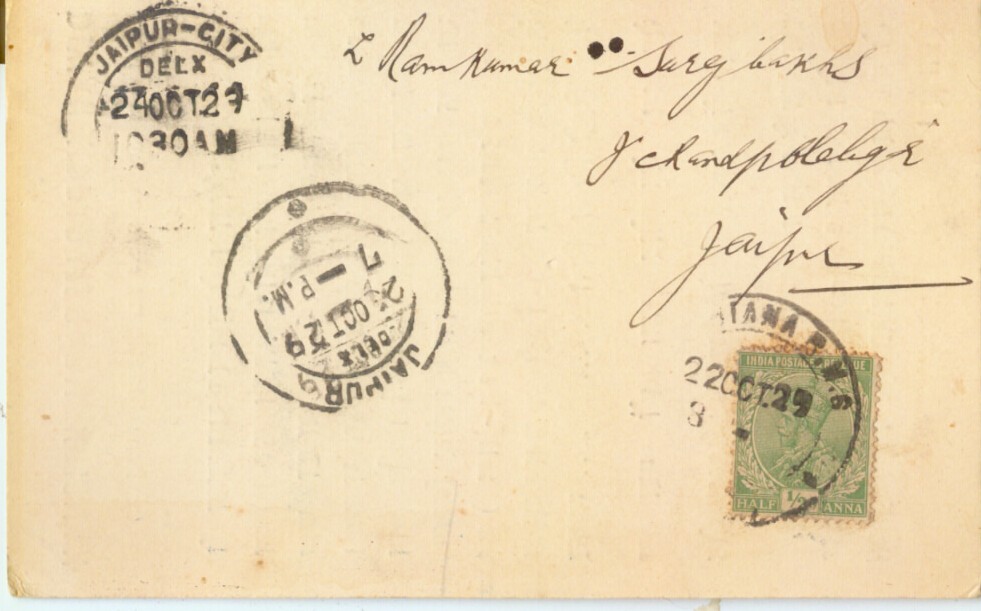 JAIPUR-CITY
DELX
24OCT.29
1030AM
L Ramkumar Surajbakhs
Jaipur
JAIPUR
DELX
OCT.29
P.M.
7
IANA R.M.S
22OCT.29
3
INDIA POSTAGE & REVENUE
HALF 1/2 ANNA